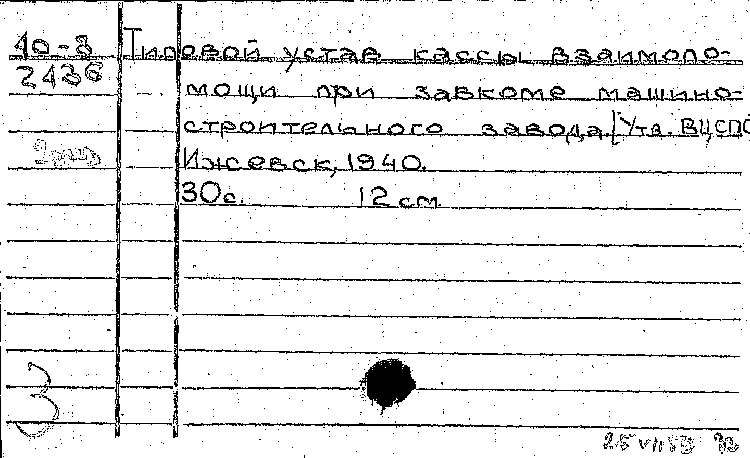 40-3
2436
Типовой устав кассы взаимопо-
мощи при завкоме машино-
строительного завода. [Утв. ВЦСПС
Ижевск, 1940.
30 с. 12 см
3